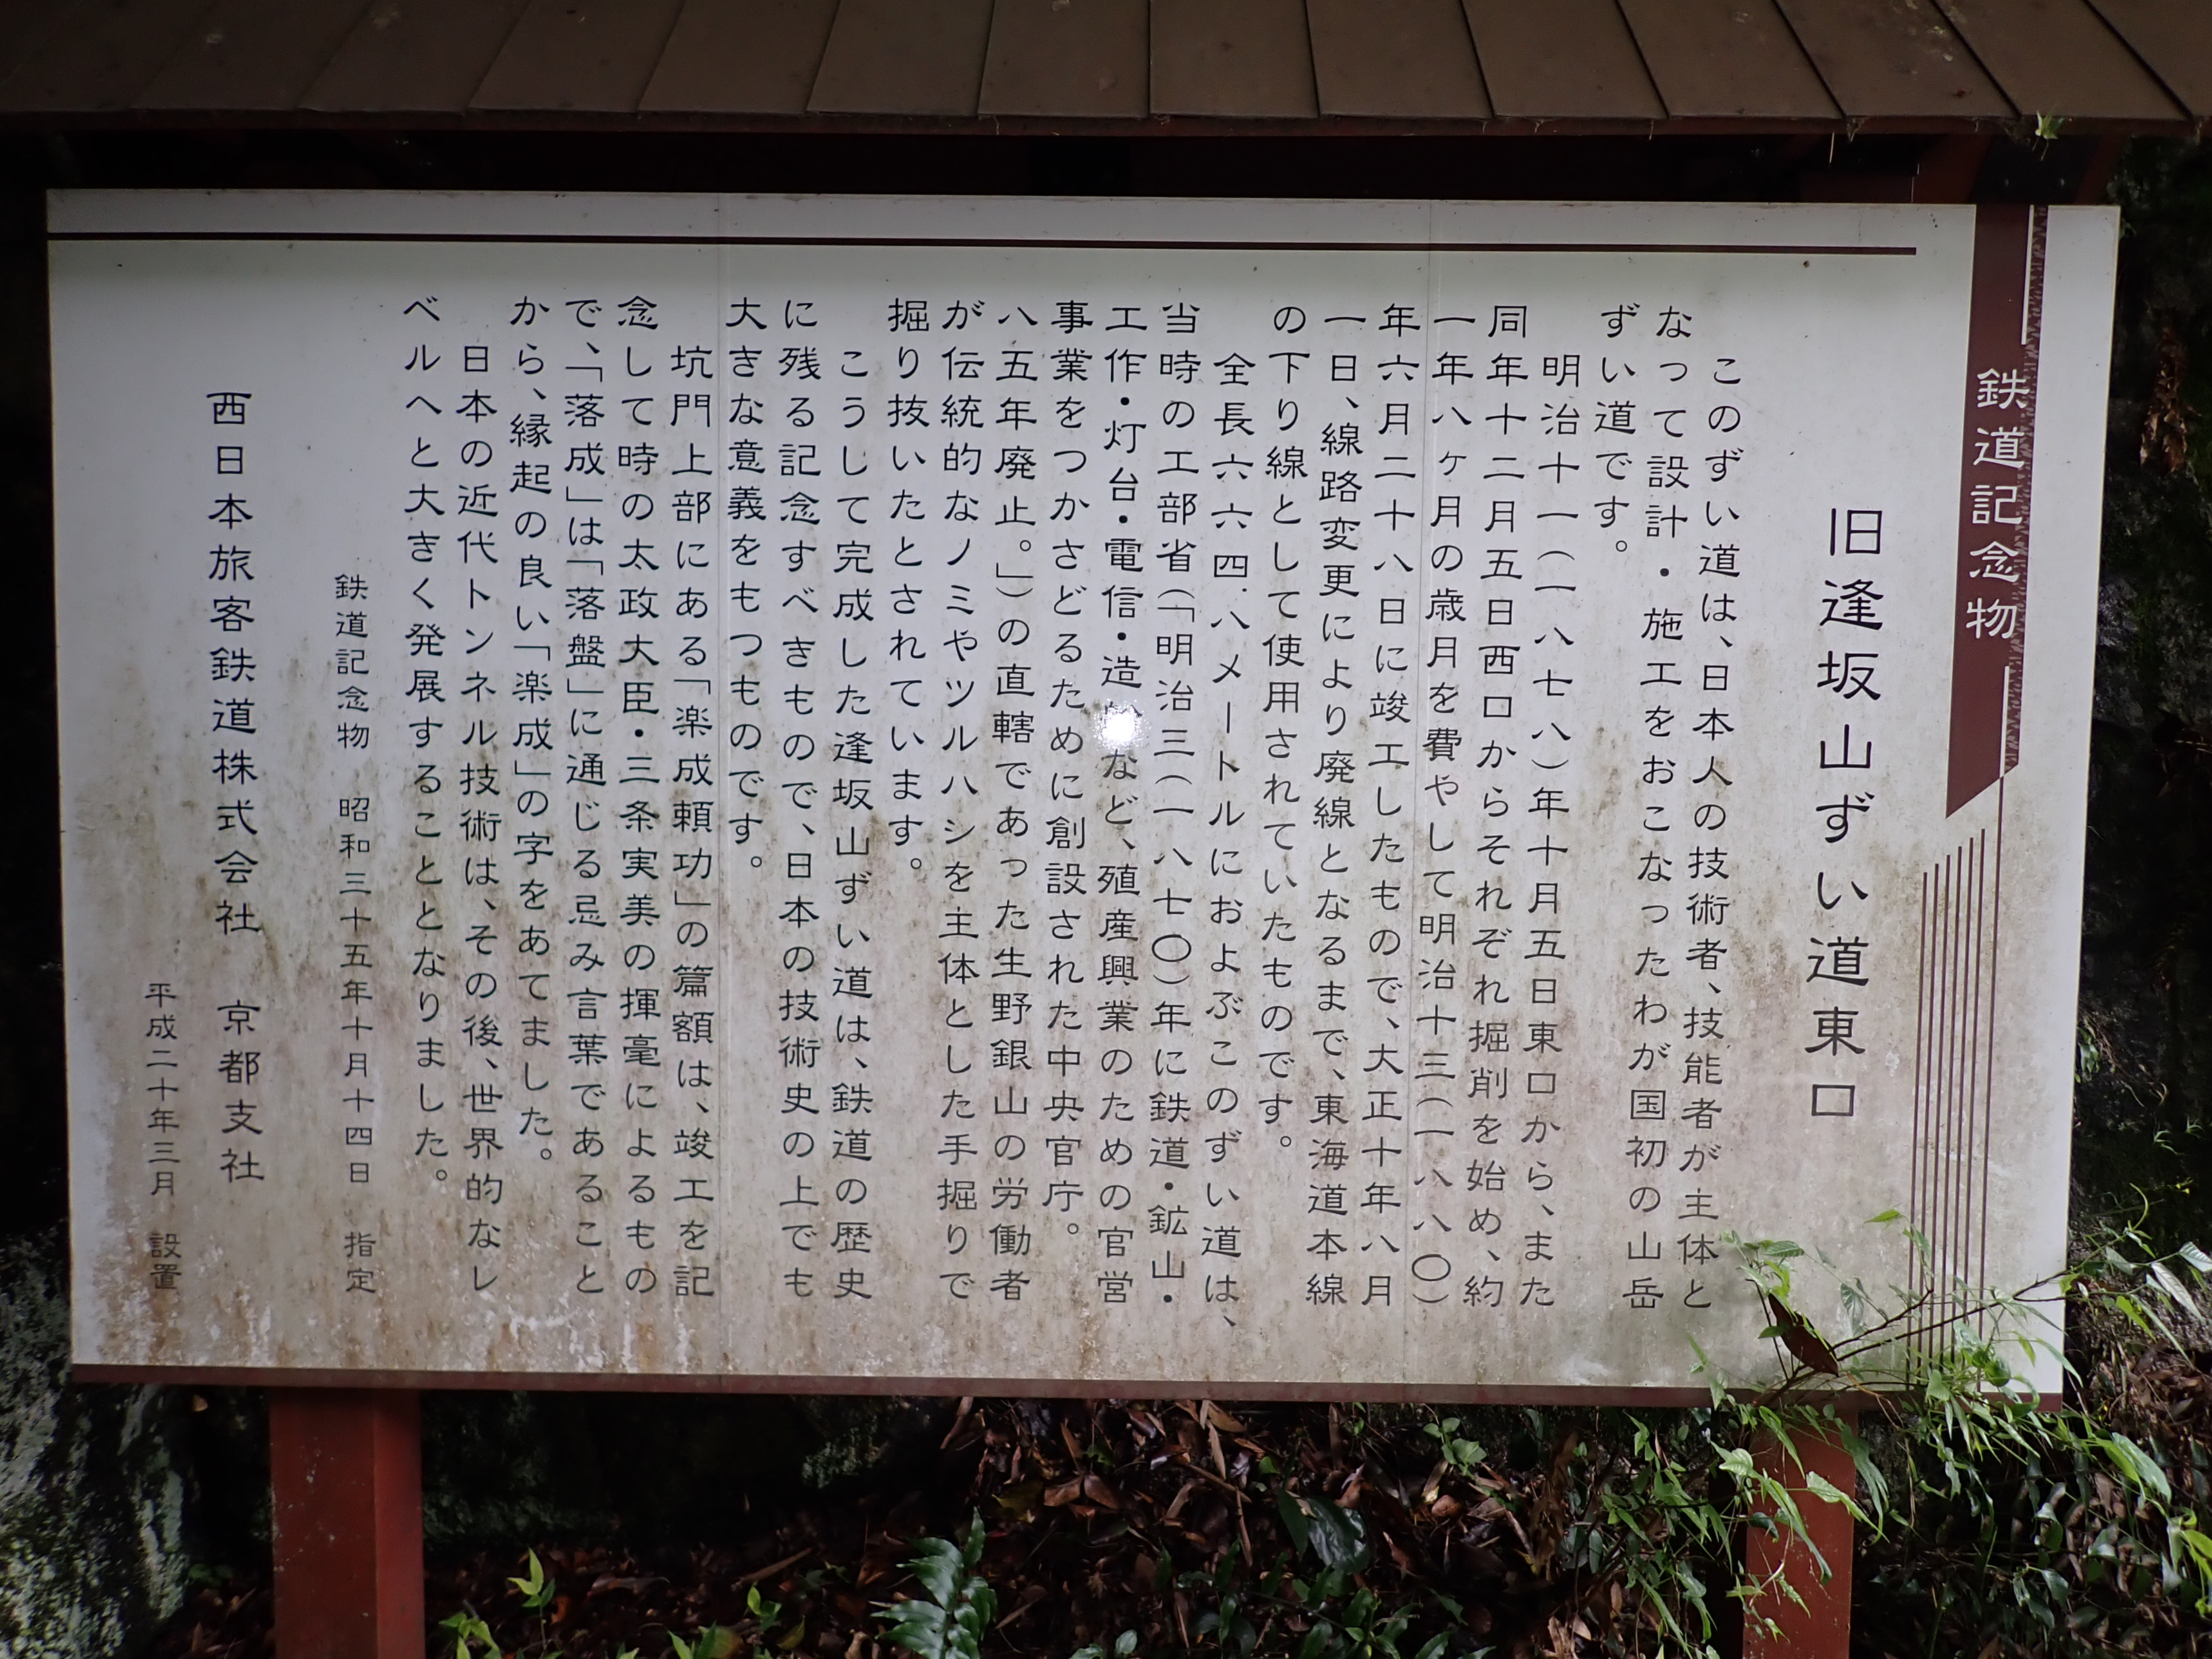 鉄道記念物
旧逢坂山ずい道東口
このずい道は、日本人の技術者、技能者が主体と
なって設計・施工をおこなったわが国初の山岳
ずい道です。
明治十一(一八七八)年十月五日東口から、また
同年十二月五日西口からそれぞれ掘削を始め、約
一年八ヶ月の歳月を費やして明治十三(一八八〇)
年六月二十八日に竣工したもので、大正十年八月
一日、線路変更により廃線となるまで、東海道本線
の下り線として使用されていたものです。
全長六六四.八メートルにおよぶこのずい道は、
当時の工部省(「明治三(一八七〇)年に鉄道・鉱山・
工作・灯台・電信・造 など、殖産興業のための官営
事業をつかさどるために創設された中央官庁。
八五年廃止。」)の直轄であった生野銀山の労働者
が伝統的なノミやツルハシを主体とした手掘りで
掘り抜いたとされています。
こうして完成した逢坂山ずい道は、鉄道の歴史
に残る記念すべきもので、日本の技術史の上でも
大きな意義をもつものです。
坑門上部にある「楽成頼功」の篇額は、竣工を記
念して時の太政大臣・三条実美の揮毫によるもの
で、「落成」は「落盤」に通じる忌み言葉であること
から、縁起の良い「楽成」の字をあてました。
日本の近代トンネル技術は、その後、世界的なレ
ベルへと大きく発展することとなりました。
鉄道記念物 昭和三十五年十月十四日 指定
西日本旅客鉄道株式会社 京都支社
平成二十年三月 設置